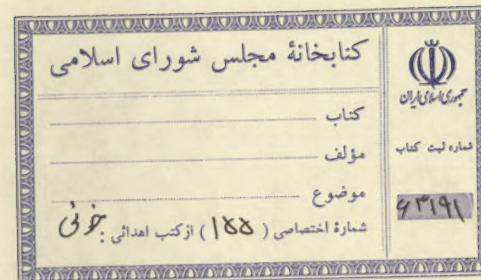 کتابخانهٔ مجلس شورای اسلامی
کتاب
مؤلف
موضوع
شمارهٔ اختصاصی ( ۱۵۵ ) از کتب اهدائی : خوئی
جمهوری اسلامی ایران
شماره ثبت کتاب
۶۳۱۹۱